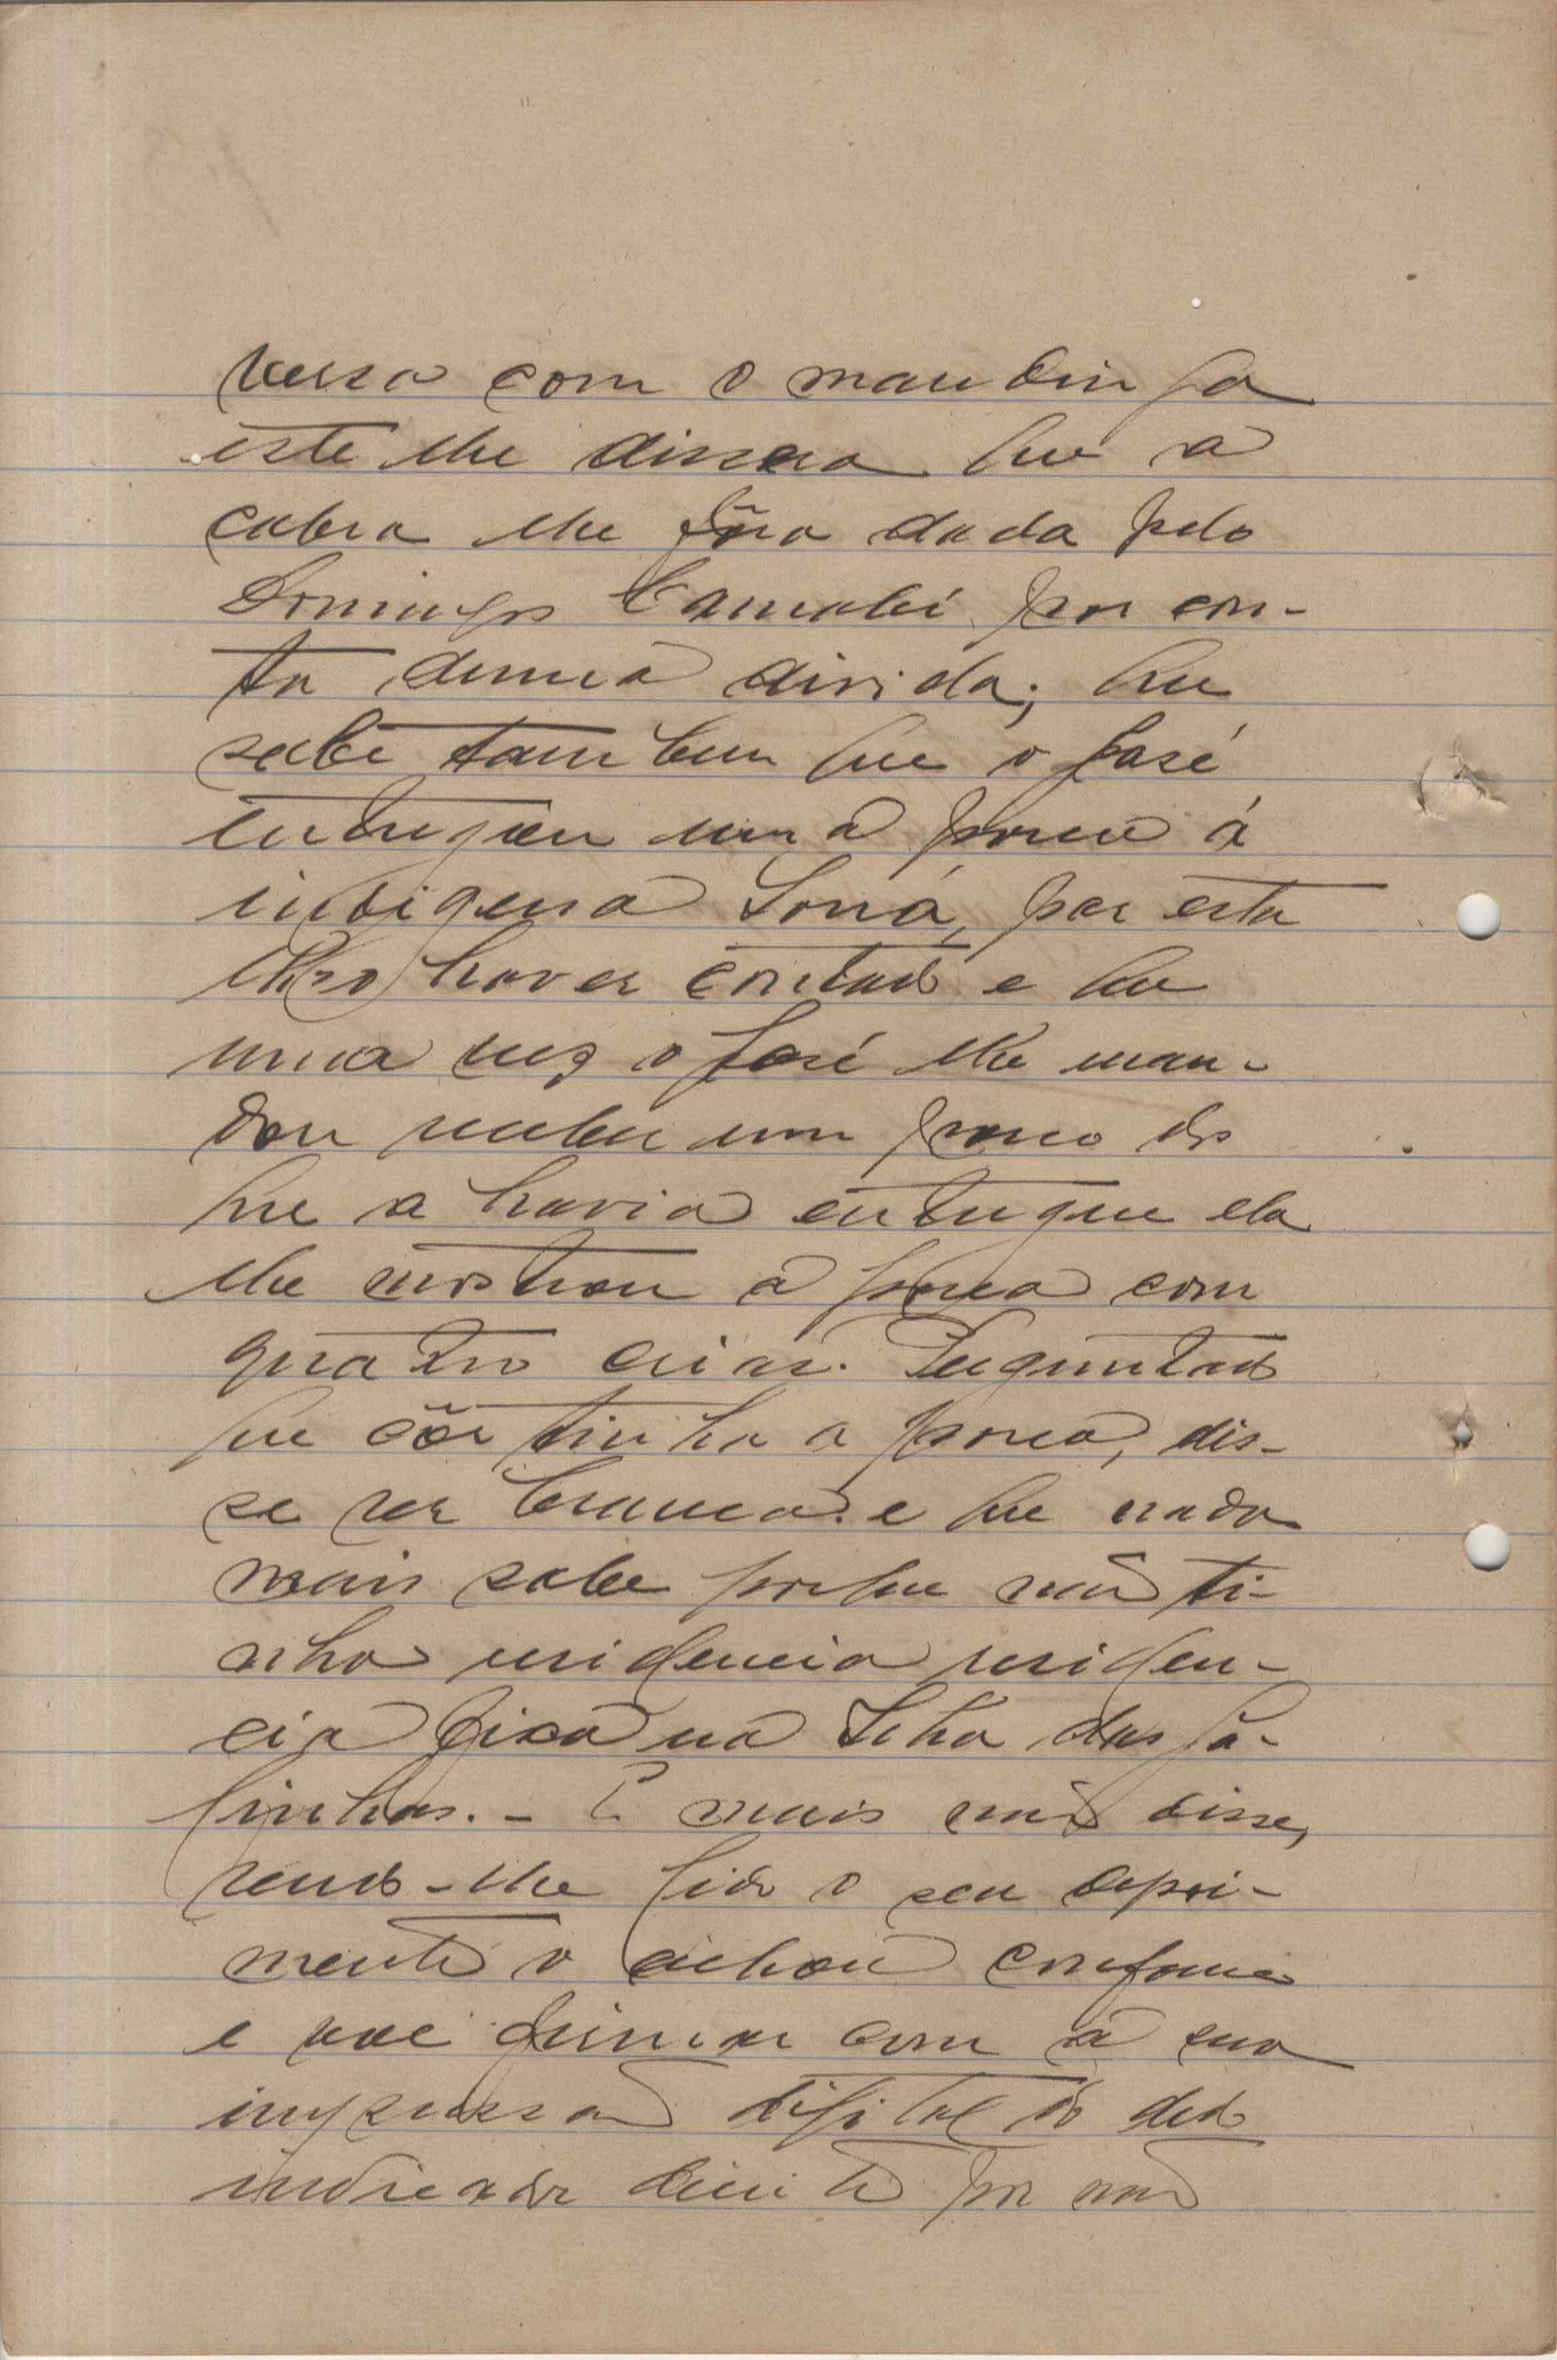 versa com o mandinga
este lhe dissera que a
cabra lhe fôra dada pelo
Domingos Camabé por con-
ta duma divida; que
sabe tambem que o José
entregou uma porca á
indigena Soná, por esta
lhso haver contado e que
uma vez o José lhe man-
dou receber um porco dos
que a havia entregue ela
lhe mostrou a porca com
quatro crias. Perguntado
que côr tinha a porca, dis-
se ser branca. e que nada
mais sabe porque não ti-
nha residencia residen-
cia fixa na Ilha das Ga-
linhas. - E mais não disse,
sendo-lhe lido o seu depoi-
mento o achou conforme
e vae firmar com a sua
impressão digital do dedo
indicador direito por não